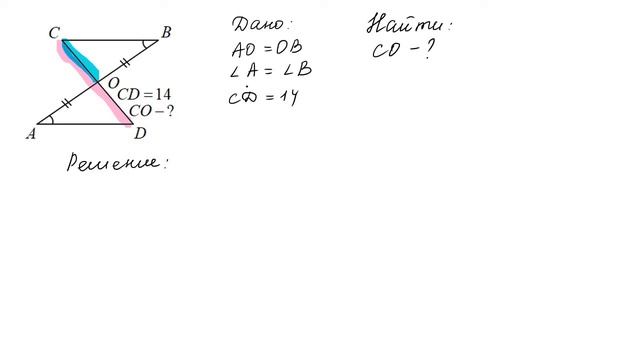 C
B
O
CD = 14
CO – ?
A
D
Дано:
AO = OB
∠A = ∠B
CD = 14
Найти:
CO – ?
Решение: